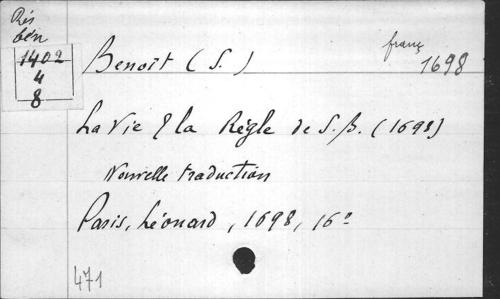 Rés
bén
1402
4
8
Benoit (S.)
franç
1698
La Vie & la Règle de S. B. (1698)
Nouvelle traduction
Paris, Léonard, 1698, 16°
471